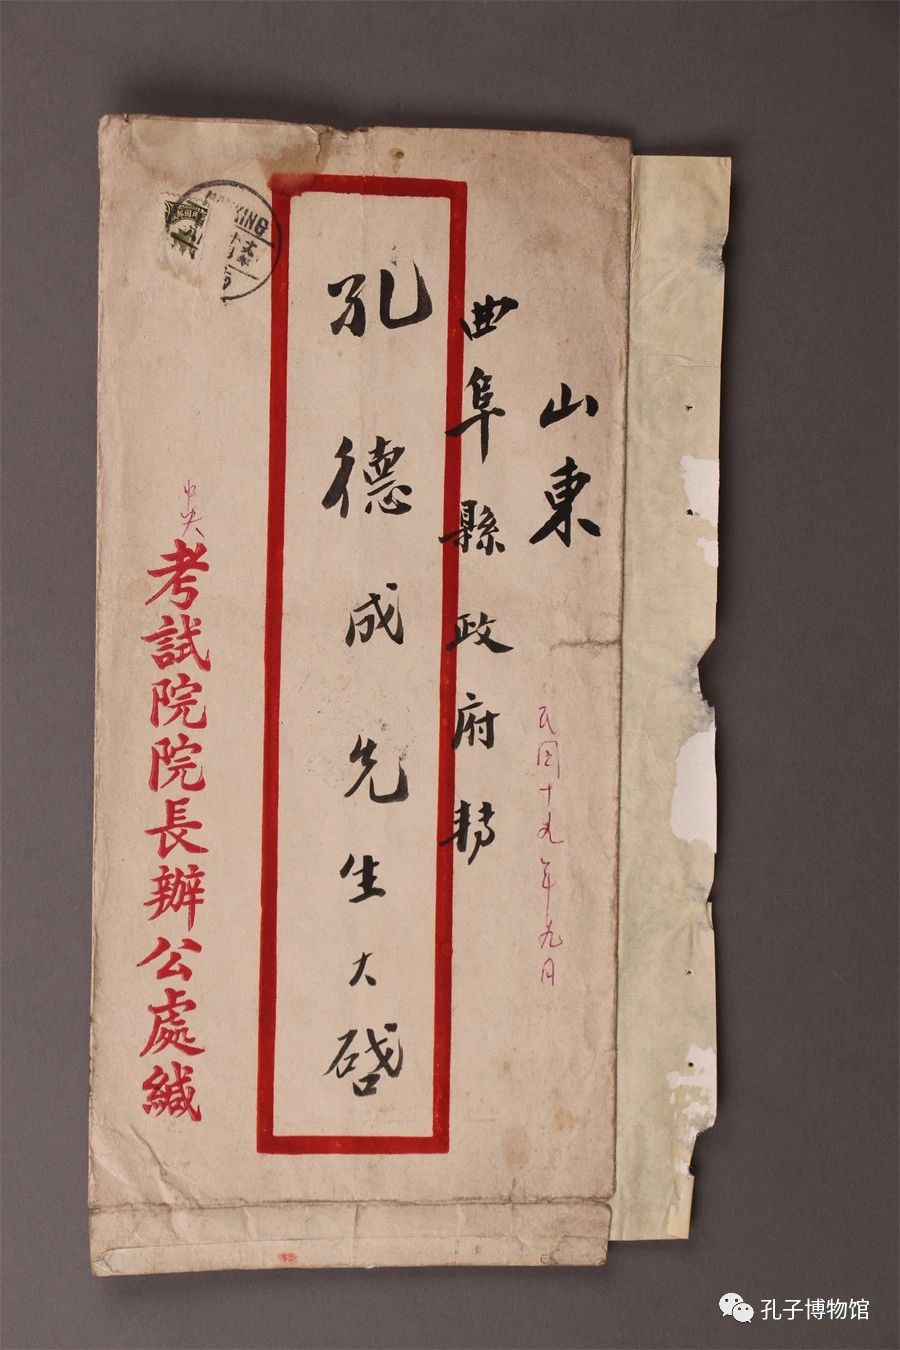 山東
曲阜縣政府轉
民国十九年九月
孔德成先生大啓
中央
考試院院長辦公處緘
孔子博物馆